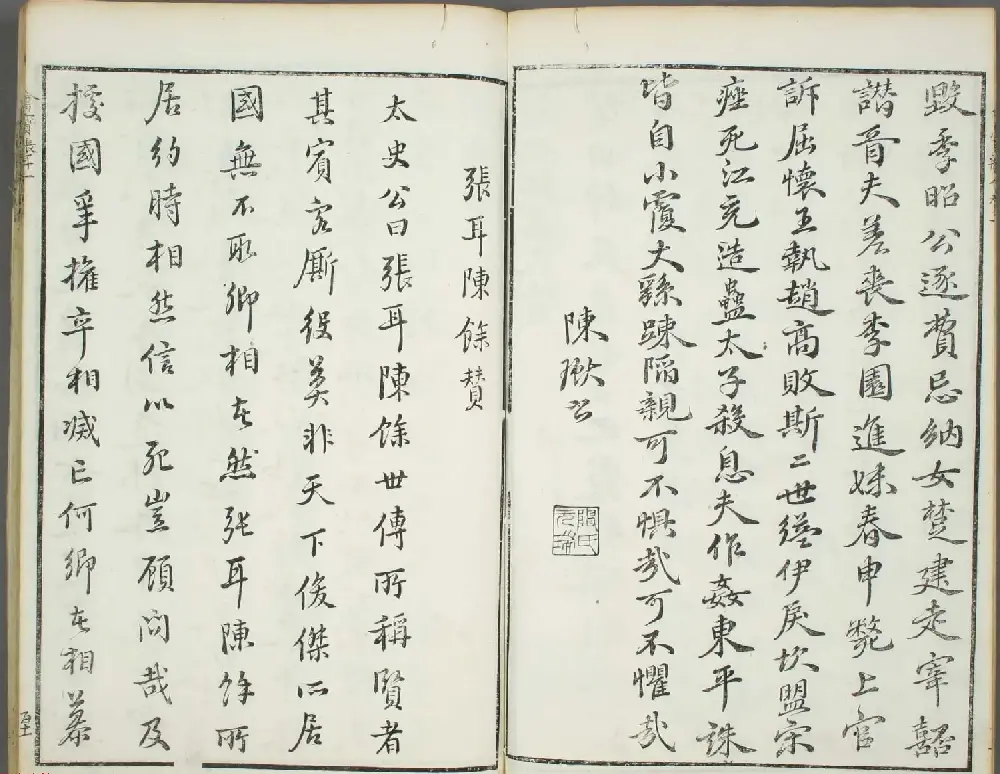 毀季昭公逐費忌納女楚建走宰嚭
譖胥夫差喪李園進妹春申斃上官
訴屈懷王執趙高敗斯二世縊伊戾坎盟宋
痤死江充造蠱太子殺息夫作姦東平誅
皆自小覆大繇踈陷親可不惧哉可不懼哉
陳
張耳陳餘贊
太史公曰張耳陳餘世傳所稱賢者
其賓客厮役莫非天下俊傑所居
國無不取卿相者然張耳陳餘所
居約時相然信以死豈顧問哉及
據國爭權卒相滅亡何鄉者相慕